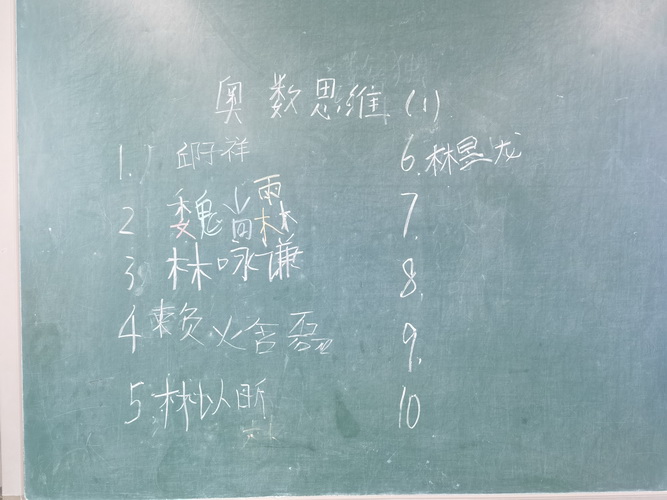 奥数思维(1)
1. 邱子祥
2 魏尚霖
3. 林咏谦
4 赖
5 林以昕
6. 林昱龙
7.
8.
9.
10